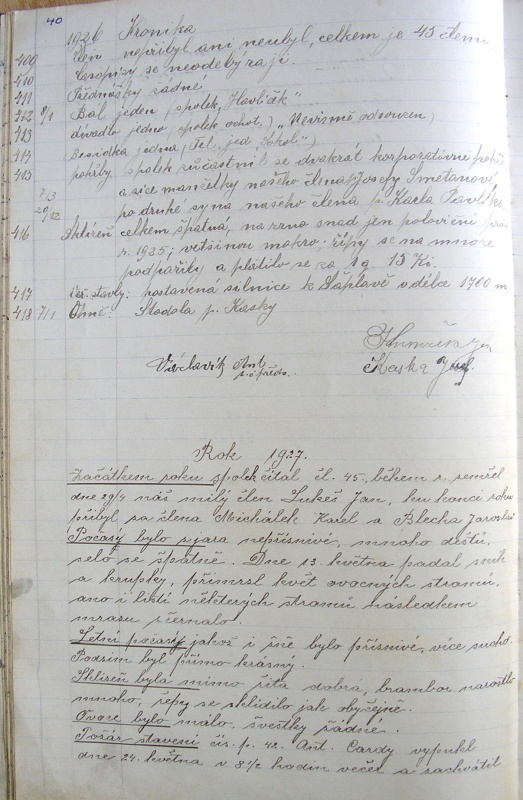 40
1926 Kronika
409 Člen nepřibyl ani neubyl, celkem je 45 členů.
410 Časopisy se neodebyrají.
411 Přednášky žádné
412 8/1 Bál jeden (spolek „Havlíček“
413 divadlo jedno, spolek ochot.) „Nevinně odsouzen)
414 Besídka jedna, (Těl. jed. Sokol“)
415 pohřby spolek zúčastnil se dvakrát korporativně
7/3 a sice manželky našeho člena Josefy Smetanové,
29/12 po druhé syna našeho člena p. Karla Pavlíka
416 Sklizeň celkem špatná, na zrno snad jen poloviční
r. 1925; většinou mokro; řípy se na mnoze
podpařily a platilo se za 1 q. 15 Kč.
417 postavená silnice k Šáplavě v délce 1700 m
418 7/11 Ohně: Stodola p. Kasky
Václavík Ant
Kaska Josef.
Rok 1927.
Začátkem roku spolek čítal čl. 45, během r. zemřel
dne 29/4 náš milý člen Lukeš Jan, ku konci roku
přibyl za člena Michálek Karel a Blecha Jaroslav
Počasý bylo z jara nepřísnivé, mnoho deštů,
selo se špatně. Dne 13. května padal sníh
a krupky, přimrzl květ ovocných stromů,
ano i listí některých stromů následkem
mrazu zčernalo.
Letní počasý jakož i žně bylo přísnivé, více sucho.
Podzim byl přímo krásný.
Sklizeň byla mimo žita dobrá, brambor narostlo
mnoho, řepy se sklidilo jak obyčejně.
Ovoce bylo málo. švestky žádné.
Požár stavení čís. p. 42. Ant. Cardy vypukl
dne 24. května v 8 1/2 hodin večer a zachvátil